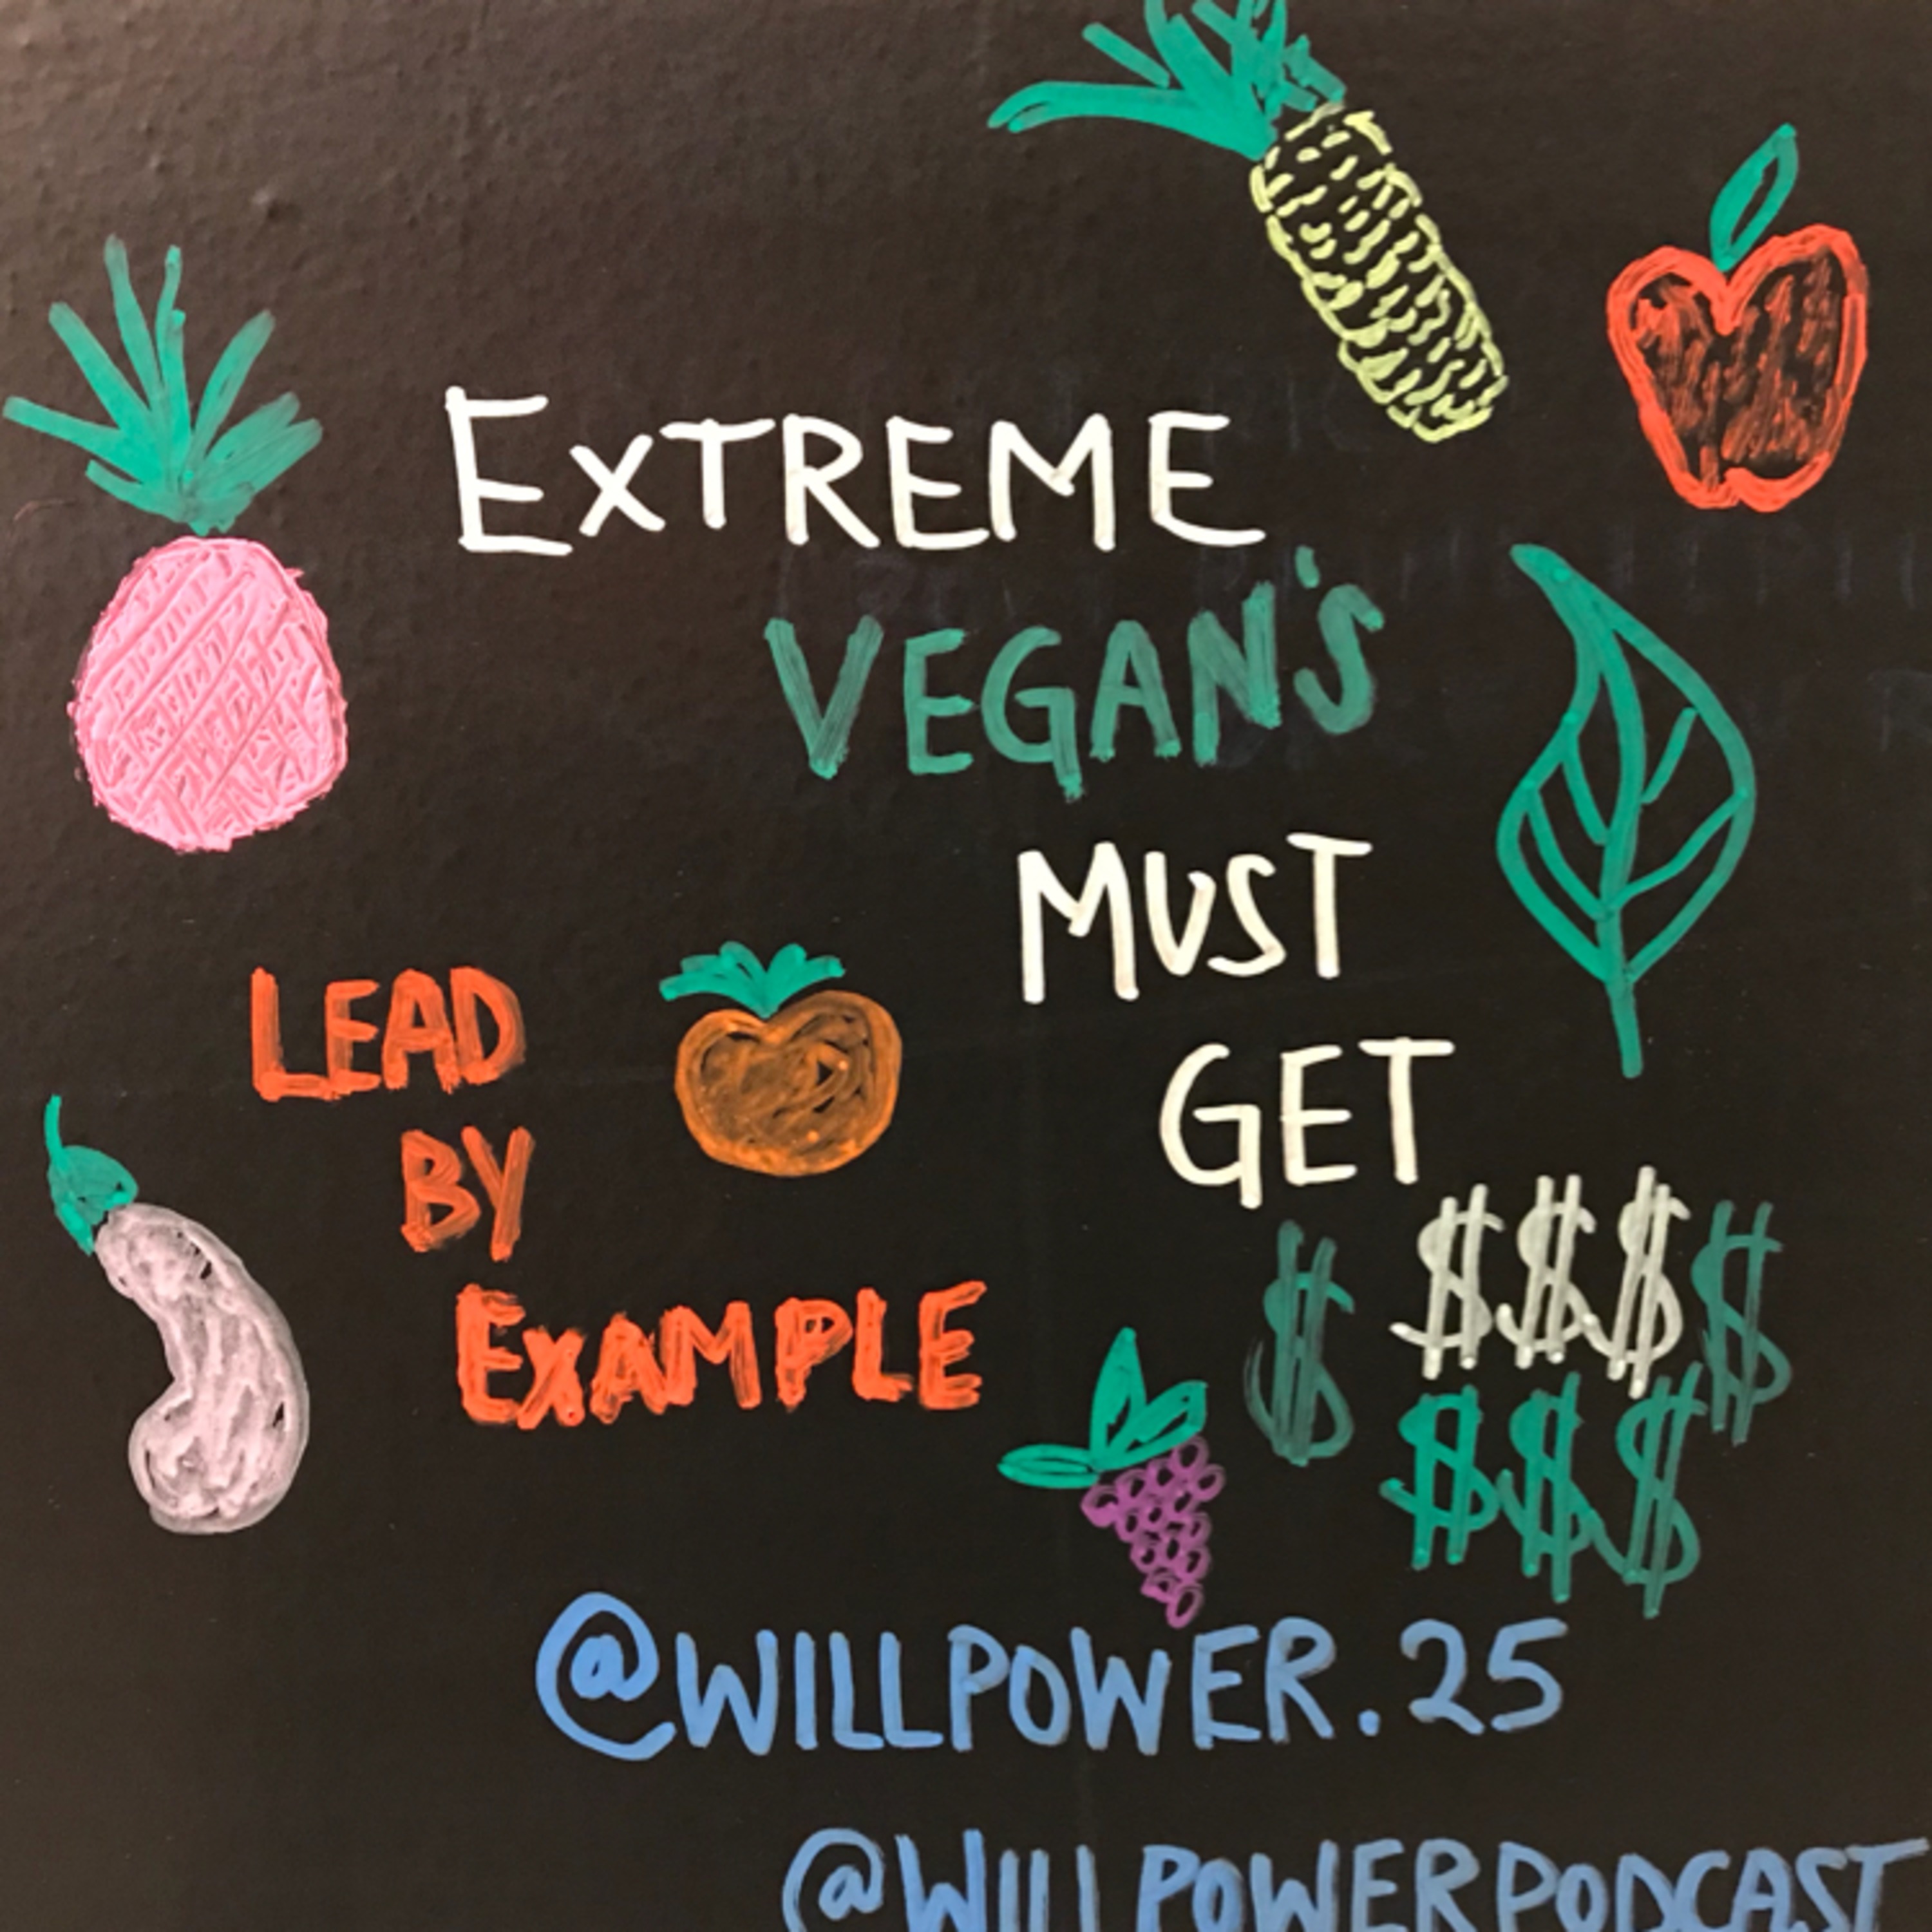 EXTREME
VEGAN'S
MUST
GET
$$$$$
$$$
LEAD
BY
EXAMPLE
@WILLPOWER.25
@WILLPOWERPODCAST